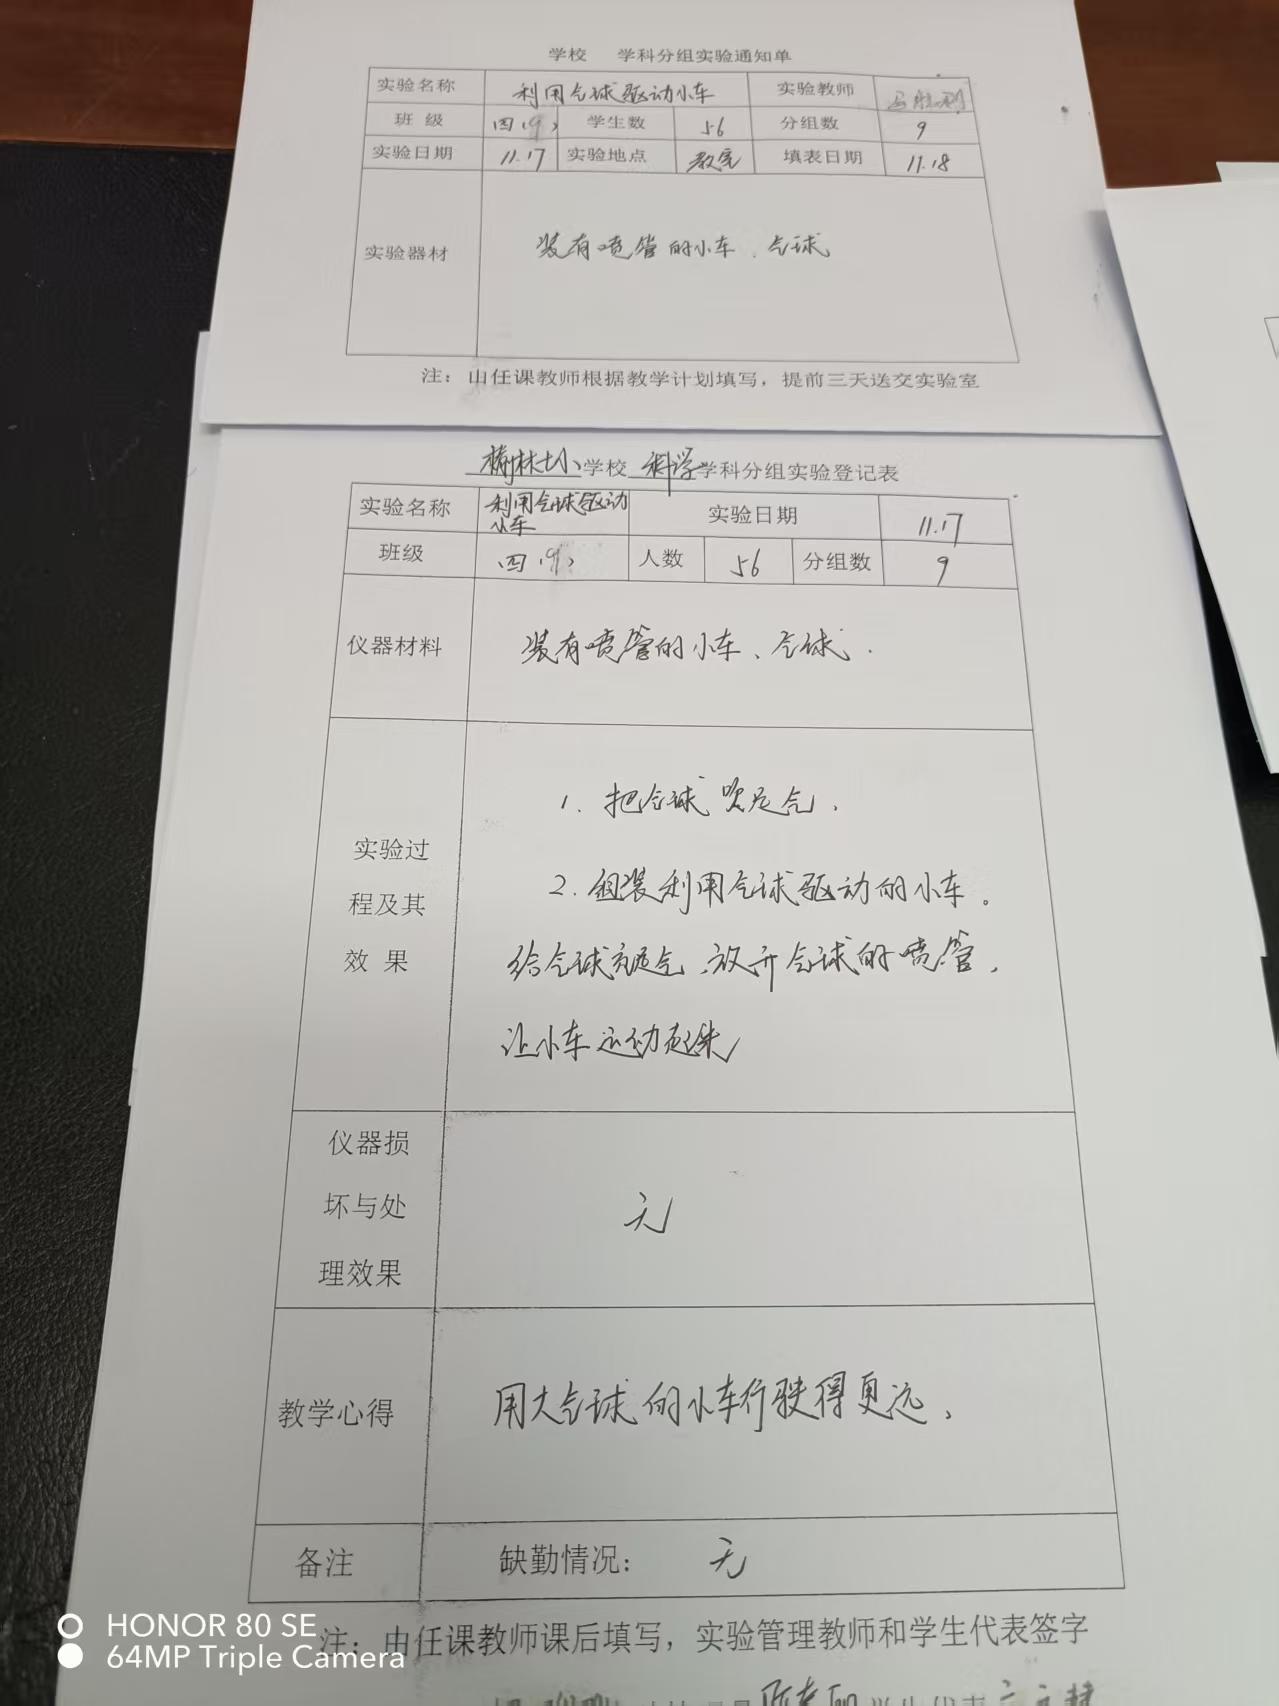 学校 学科分组实验通知单
实验名称 利用气球驱动小车 实验教师
班 级 四(9) 学生数 56 分组数 9
实验日期 11.17 实验地点 教室 填表日期 11.18
实验器材 装有喷管的小车、气球
注：由任课教师根据教学计划填写，提前三天送交实验室
学校 科学学科分组实验登记表
实验名称 利用气球驱动 实验日期 11.17
小车
班级 四(9) 人数 56 分组数 9
仪器材料 装有喷管的小车、气球.
1. 把气球吹足气.
实验过
2. 组装利用气球驱动的小车。
程及其
效 果 给气球充足气、放开气球的喷管、
让小车运动起来
仪器损
坏与处 无
理效果
教学心得 用大气球的小车行驶得更远、
备注 缺勤情况: 无
HONOR 80 SE
注：由任课教师课后填写，实验管理教师和学生代表签字
64MP Triple Camera